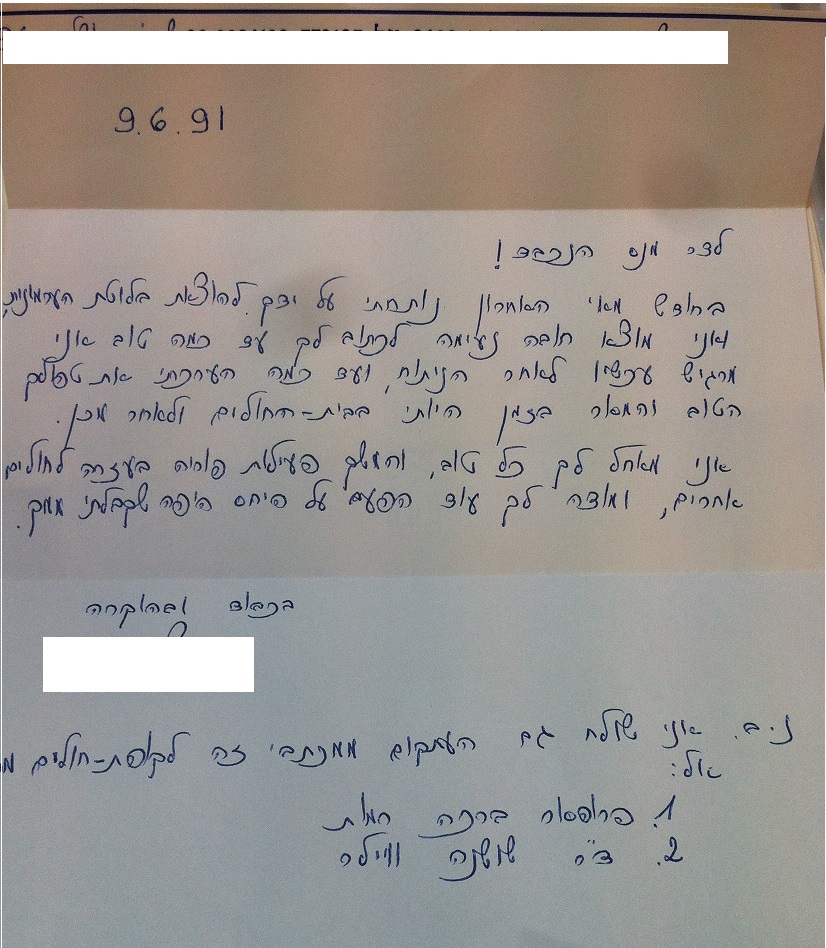 9.6.91
לדר מנס הנכבד!
בחודש מאי האחרון נותחתי על ידך להוצאת בלוטת הערמונית,
ואני מוצא חובה נעימה לכתוב לך עד כמה טוב אני
מרגיש עכשיו לאחר הניתוח, ועד כמה הערכתי את טפולך
הטוב והמסור בזמן היותי בבית-החולים ולאחר מכן.
אני מאחל לך כל טוב, והמשך פעילות פוריה בעזרה לחולים
אחרים, ומודה לך עוד הפעם על היחס היפה שקבלתי ממך.
בכבוד ובהוקרה
נ.ב. אני שולח גם העתקים ממכתבי זה לקופת-חולים
אל:
1. פרופסור ברכה רמות
2. ד"ר שושנה ווילר